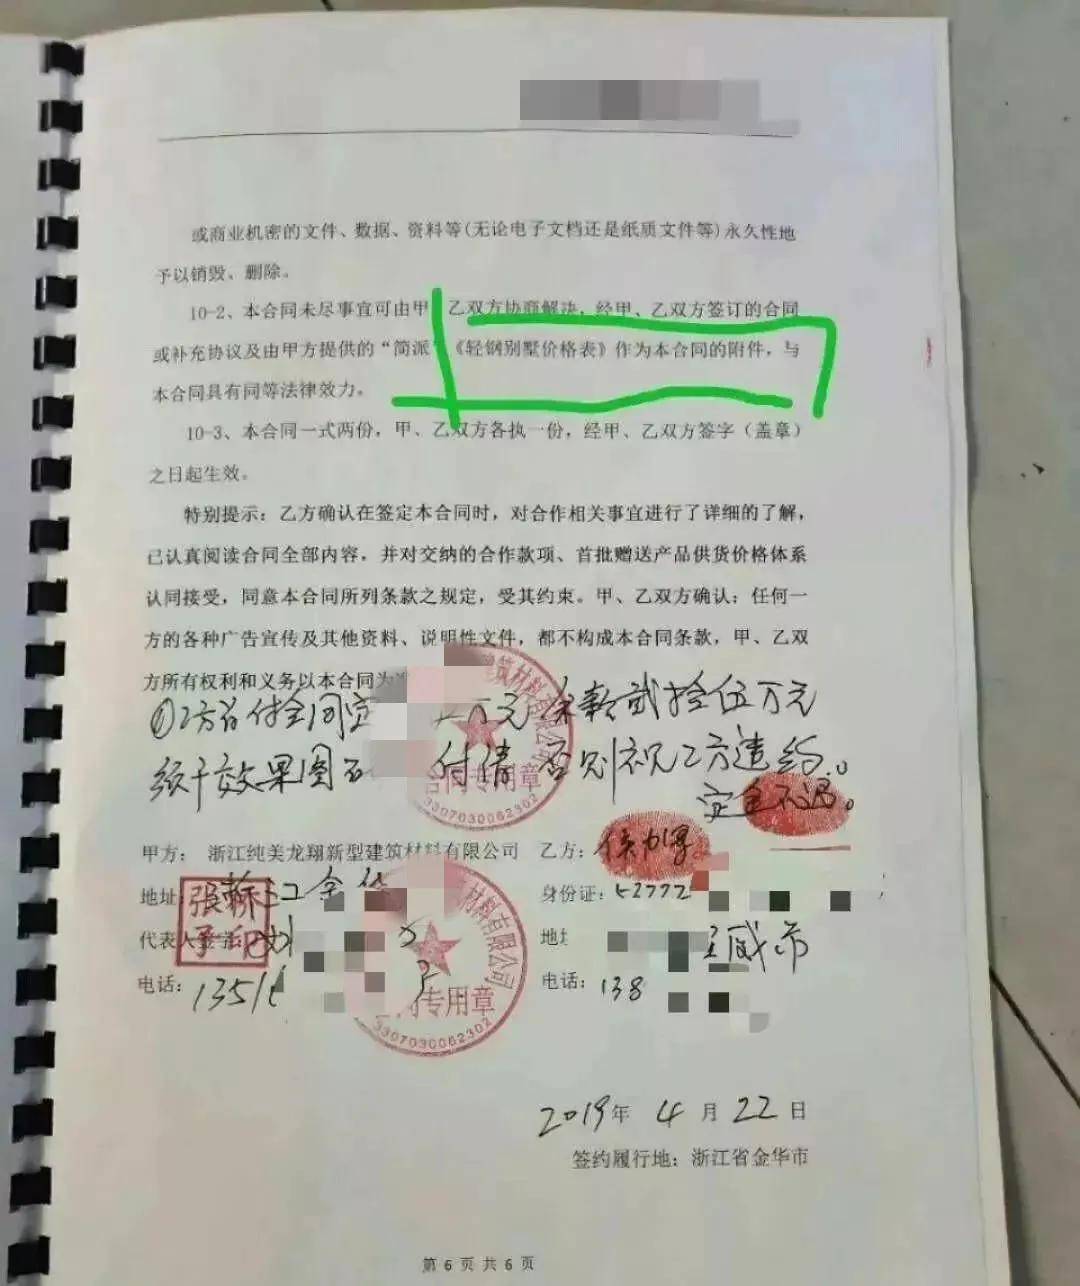 或商业机密的文件、数据、资料等(无论电子文档还是纸质文件等)永久性地
予以销毁、删除。
10-2、本合同未尽事宜可由甲 乙双方协商解决，经甲、乙双方签订的合同
或补充协议及由甲方提供的“简派”《轻钢别墅价格表》作为本合同的附件，与
本合同具有同等法律效力。
10-3、本合同一式两份，甲、乙双方各执一份，经甲、乙双方签字（盖章）
之日起生效。
特别提示：乙方确认在签定本合同时，对合作相关事宜进行了详细的了解，
已认真阅读合同全部内容，并对交纳的合作款项、首批赠送产品供货价格体系
认同接受，同意本合同所列条款之规定，受其约束。甲、乙双方确认：任何一
方的各种广告宣传及其他资料、说明性文件，都不构成本合同条款，甲、乙双
方所有权利和义务以本合同为
①乙方 付合同定 万元 余款贰拾伍万元
须于效果图 付清 否则视乙方违约。
定金不退。
建筑材料有限公司
合同专用章
3307030062302
甲方： 浙江纯美龙翔新型建筑材料有限公司 乙方：
地址: 浙江金 身份证：52272
代表人签字: 地 威市
电话： 1351 电话： 138
材料有限公司
专用章
3307030062302
2019年 4 月 22 日
签约履行地：浙江省金华市
第 6 页 共 6 页